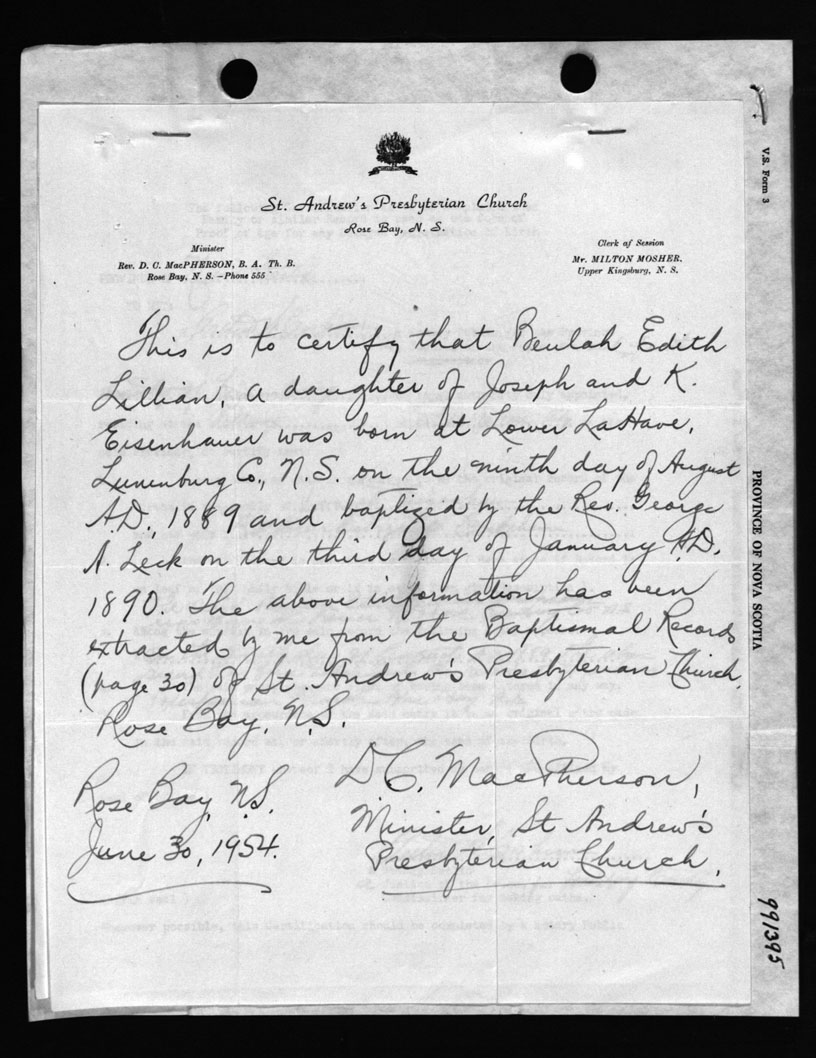 St. Andrew's Presbyterian Church
Rose Bay, N. S.
Minister
Rev. D. C. MacPHERSON, B. A. Th. B.
Rose Bay, N. S. - Phone 555
Clerk of Session
Mr. MILTON MOSHER,
Upper Kingsburg, N. S.
This is to certify that Beulah Edith
Lillian, a daughter of Joseph and K.
Eisenhauer was born at Lower LaHave,
Lunenburg Co., N.S. on the ninth day of August
A.D., 1889 and baptized by the Rev. George
A. Leck on the third day of January A.D.
1890. The above information has been
extracted by me from the Baptismal Records
(page 30) of St. Andrew's Presbyterian Church,
Rose Bay, N.S.
Rose Bay, N.S.
June 30, 1954.
D.C. MacPherson,
Minister, St Andrew's
Presbyterian Church.
V.S. Form 3
PROVINCE OF NOVA SCOTIA
991395